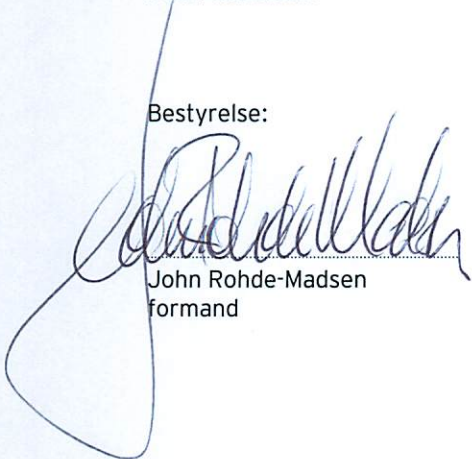 Bestyrelse:
John Rohde-Madsen
formand